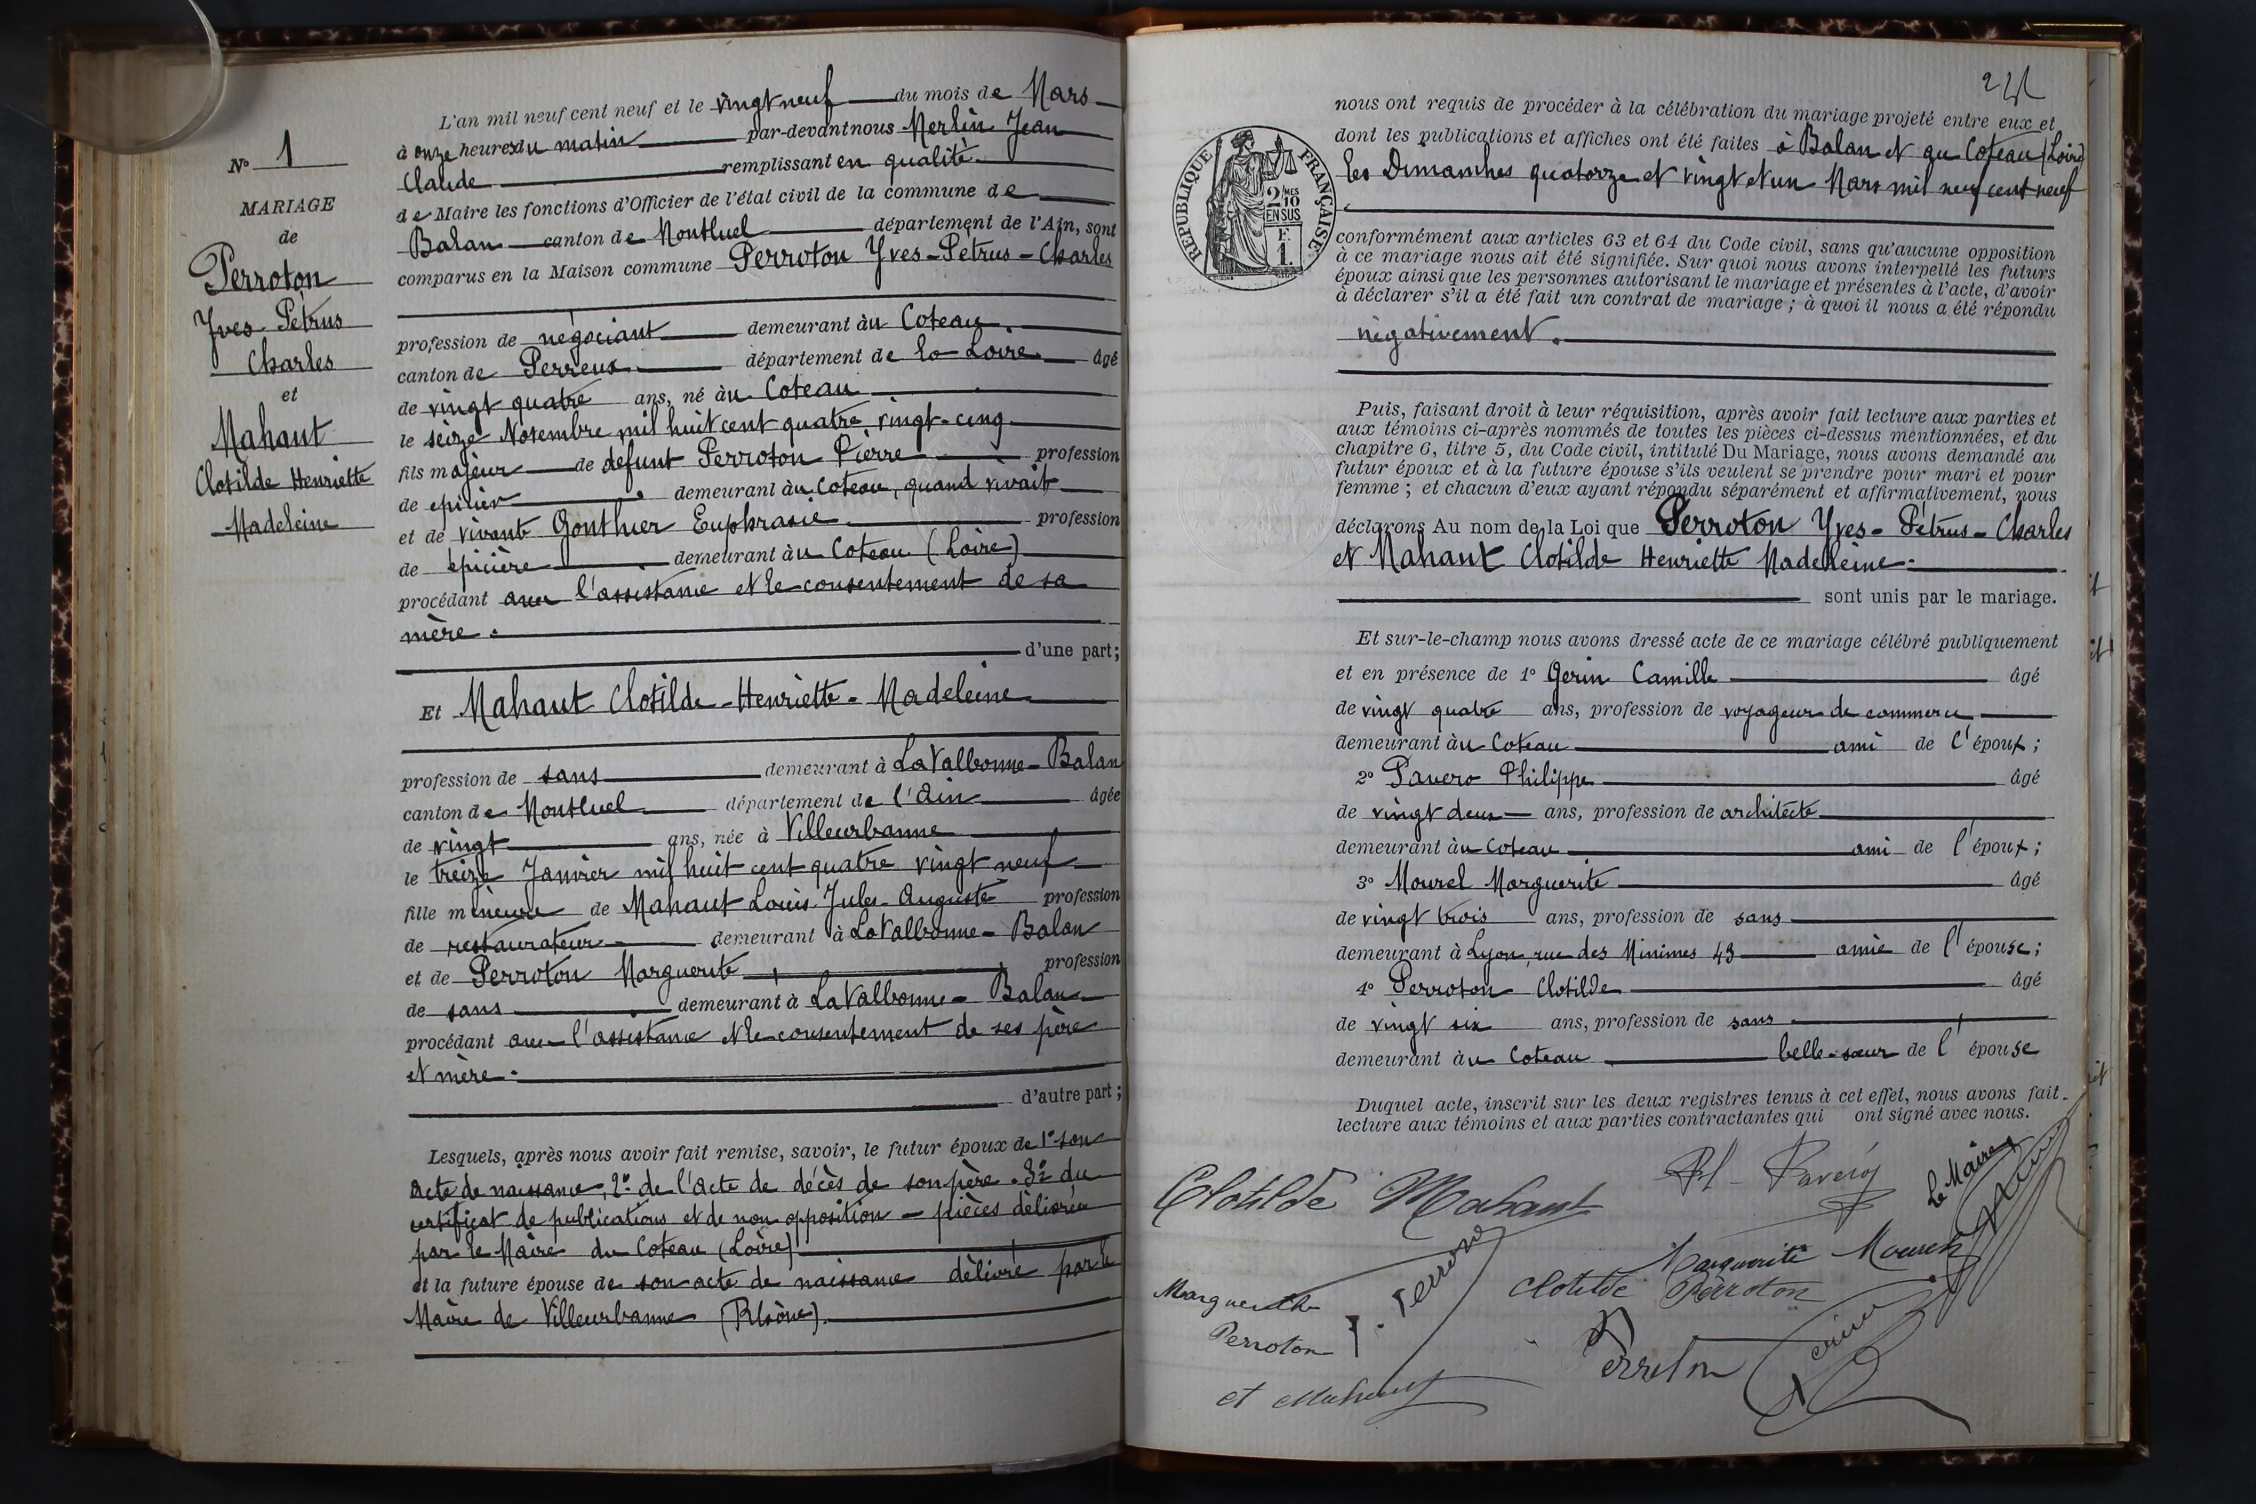 N° 1
MARIAGE
de
Perroton
Yves Pétrus
Charles
et
Mahaut
Clotilde Henriette
Madeleine
L'an mil neuf cent neuf et le vingt neuf du mois de Mars
à onze heures du matin par-devant nous Merlin Jean
Claude remplissant en qualité
de Maire les fonctions d'Officier de l'état civil de la commune de
Balan canton de Montluel département de l'Ain, sont
comparus en la Maison commune Perroton Yves-Pétrus-Charles
profession de négociant demeurant au Coteau
canton de Perreux département de la Loire âgé
de vingt quatre ans, né au Coteau
le seize Novembre mil huit cent quatre vingt-cinq
fils majeur de defunt Perroton Pierre profession
de epicier demeurant au Coteau, quand vivait
et de vivante Gonthier Euphrasie profession
de épicière demeurant au Coteau (Loire)
procédant avec l'assistance et le consentement de sa
mère.
d'une part;
Et Mahaut Clotilde-Henriette-Madeleine
profession de sans demeurant à La Valbonne-Balan
canton de Montluel département de l'Ain âgée
de vingt ans, née à Villeurbanne
le treize Janvier mil huit cent quatre vingt neuf
fille mineure de Mahaut Louis Jules-Auguste profession
de restaurateur demeurant à La Valbonne-Balan
et de Perroton Marguerite profession
de sans demeurant à La Valbonne-Balan
procédant avec l'assistance et le consentement de ses père
et mère.
d'autre part;
Lesquels, après nous avoir fait remise, savoir, le futur époux de 1° son
acte de naissance, 2° de l'acte de décès de son père. 3° du
certificat de publications et de non opposition - pièces délivrées
par le Maire du Coteau (Loire)
et la future épouse de son acte de naissance délivré par le
Maire de Villeurbanne (Rhône).
RÉPUBLIQUE FRANÇAISE
2/10MES
EN SUS
F.
1.
nous ont requis de procéder à la célébration du mariage projeté entre eux et
dont les publications et affiches ont été faites à Balan et au Coteau (Loire)
les Dimanches quatorze et vingt et un Mars mil neuf cent neuf
conformément aux articles 63 et 64 du Code civil, sans qu'aucune opposition
à ce mariage nous ait été signifiée. Sur quoi nous avons interpellé les futurs
époux ainsi que les personnes autorisant le mariage et présentes à l'acte, d'avoir
à déclarer s'il a été fait un contrat de mariage; à quoi il nous a été répondu
négativement.
Puis, faisant droit à leur réquisition, après avoir fait lecture aux parties et
aux témoins ci-après nommés de toutes les pièces ci-dessus mentionnées, et du
chapitre 6, titre 5, du Code civil, intitulé Du Mariage, nous avons demandé au
futur époux et à la future épouse s'ils veulent se prendre pour mari et pour
femme; et chacun d'eux ayant répondu séparément et affirmativement, nous
déclarons Au nom de la Loi que Perroton Yves-Pétrus-Charles
et Mahaut Clotilde Henriette Madeleine.
sont unis par le mariage.
Et sur-le-champ nous avons dressé acte de ce mariage célébré publiquement
et en présence de 1° Gerin Camille âgé
de vingt quatre ans, profession de voyageur de commerce
demeurant au Coteau ami de l'époux;
2° Pavero Philippe âgé
de vingt deux ans, profession de architecte
demeurant au Coteau ami de l'époux;
3° Mourel Marguerite âgé
de vingt trois ans, profession de sans
demeurant à Lyon, rue des Minimes 43 amie de l'épouse;
4° Perroton Clotilde âgé
de vingt six ans, profession de sans
demeurant au Coteau belle-sœur de l'épouse
Duquel acte, inscrit sur les deux registres tenus à cet effet, nous avons fait
lecture aux témoins et aux parties contractantes qui ont signé avec nous.
Clotilde Mahaut
Le Maire
Marguerite
Clotilde Perroton
Marguerite
Perroton
Perroton